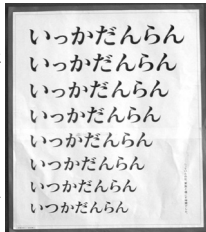 いっかだんらん
いっかだんらん
いっかだんらん
いっかだんらん
いっかだんらん
いつかだんらん
いつかだんらん
いつかだんらん